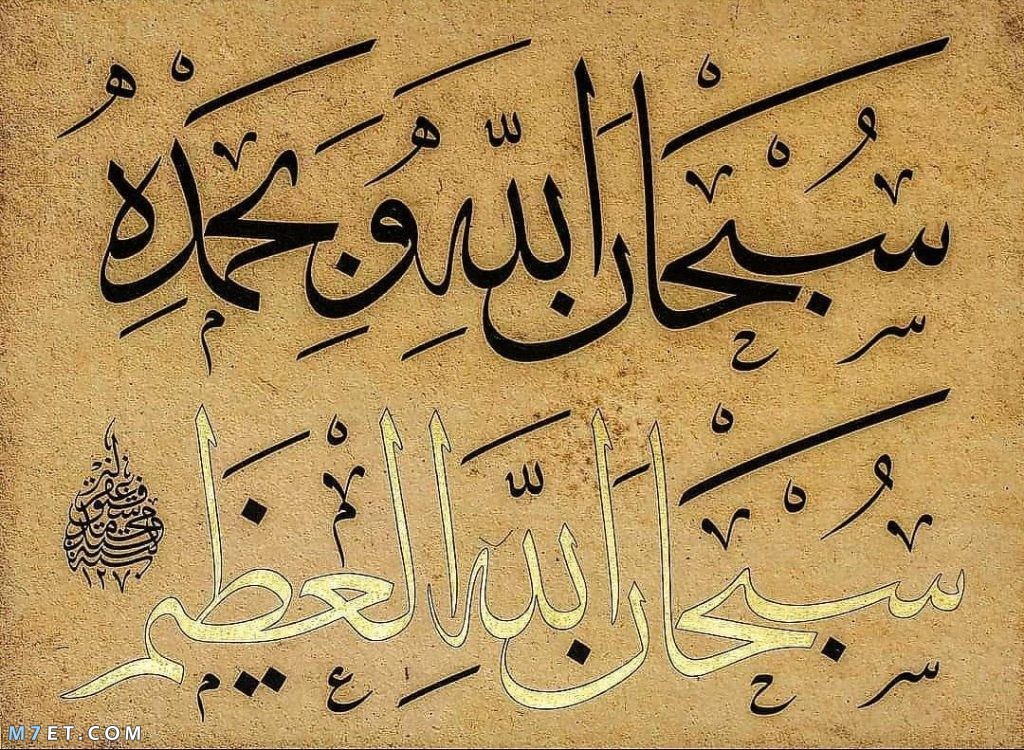 سُبْحَانَ اللّٰهِ وَبِحَمْدِهِ
سُبْحَانَ اللّٰهِ الْعَظِيمِ
M7ET.COM